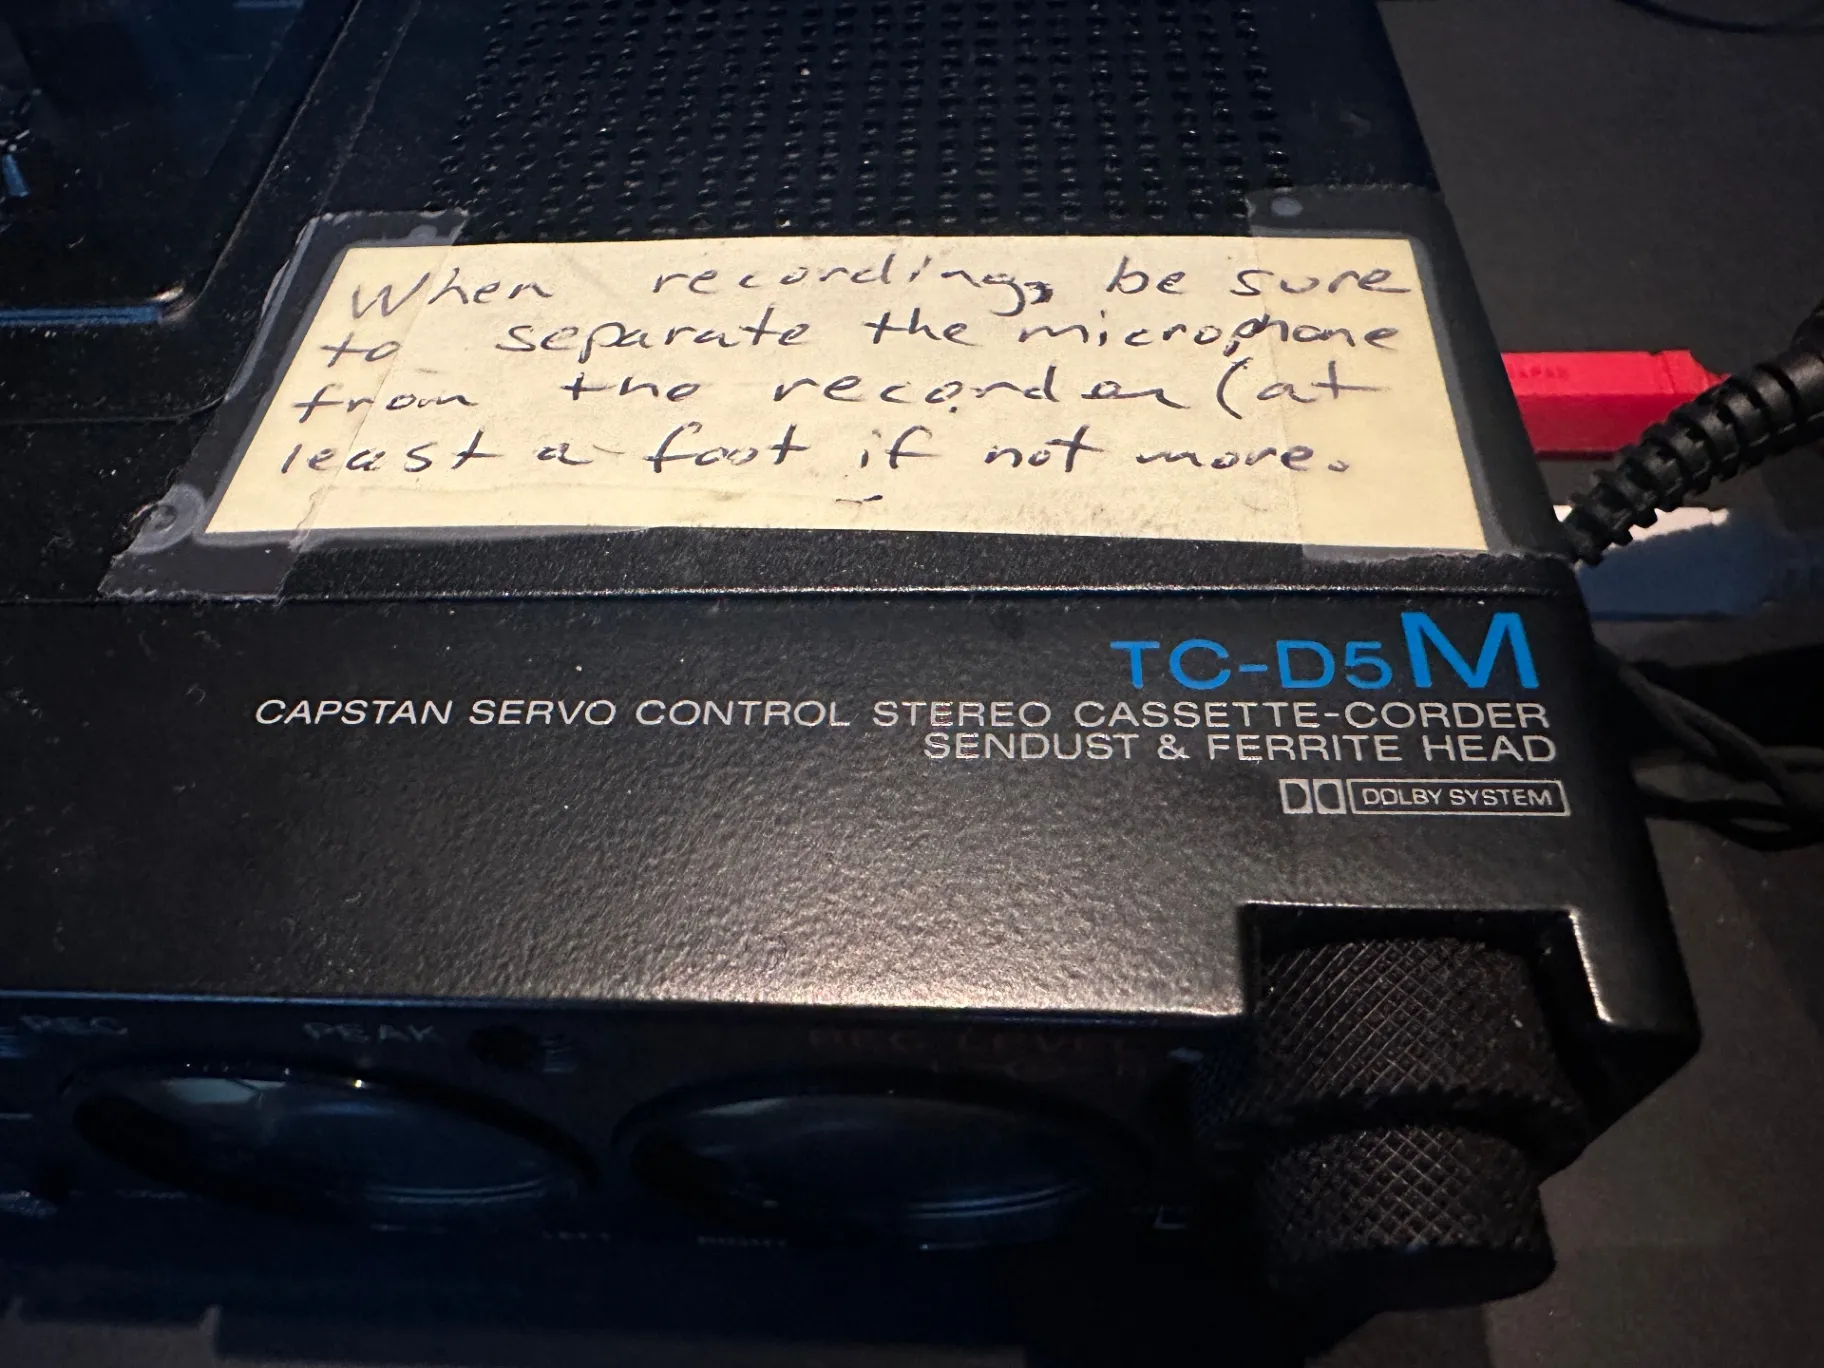 When recording, be sure
to separate the microphone
from the recorder (at
least a foot if not more.
JAPAN
TC-D5M
CAPSTAN SERVO CONTROL STEREO CASSETTE-CORDER
SENDUST & FERRITE HEAD
DOLBY SYSTEM
REC PEAK REC LEVEL
LEFT RIGHT